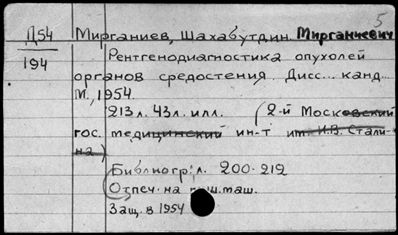 5
Д54 Мирганиев, Шахабутдин Мирганиевич
194 Рентгенодиагностика опухолей
органов средостения. Дисс... канд...
М., 1954.
213 л. 43 л. илл. (2-й Московский
гос. медицинский ин-т им. И.В. Стали-
на)
Библиогр: л. 200-212
Отпеч. на пиш. маш.
Защ. в 1954